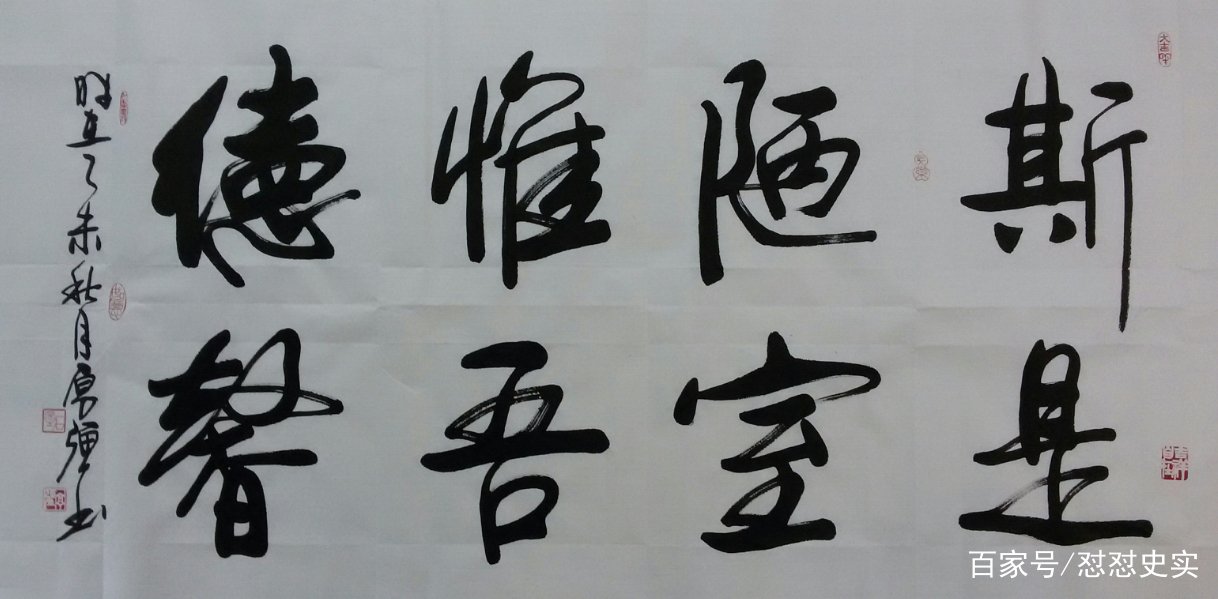 斯是
陋室
惟吾
德馨
时在乙未秋月书
百家号/怼怼史实